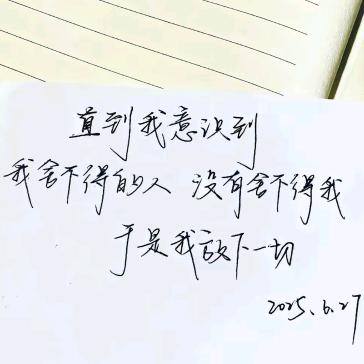 直到我意识到
我舍不得的人 没有舍不得我
于是我放下一切
2025.6.27